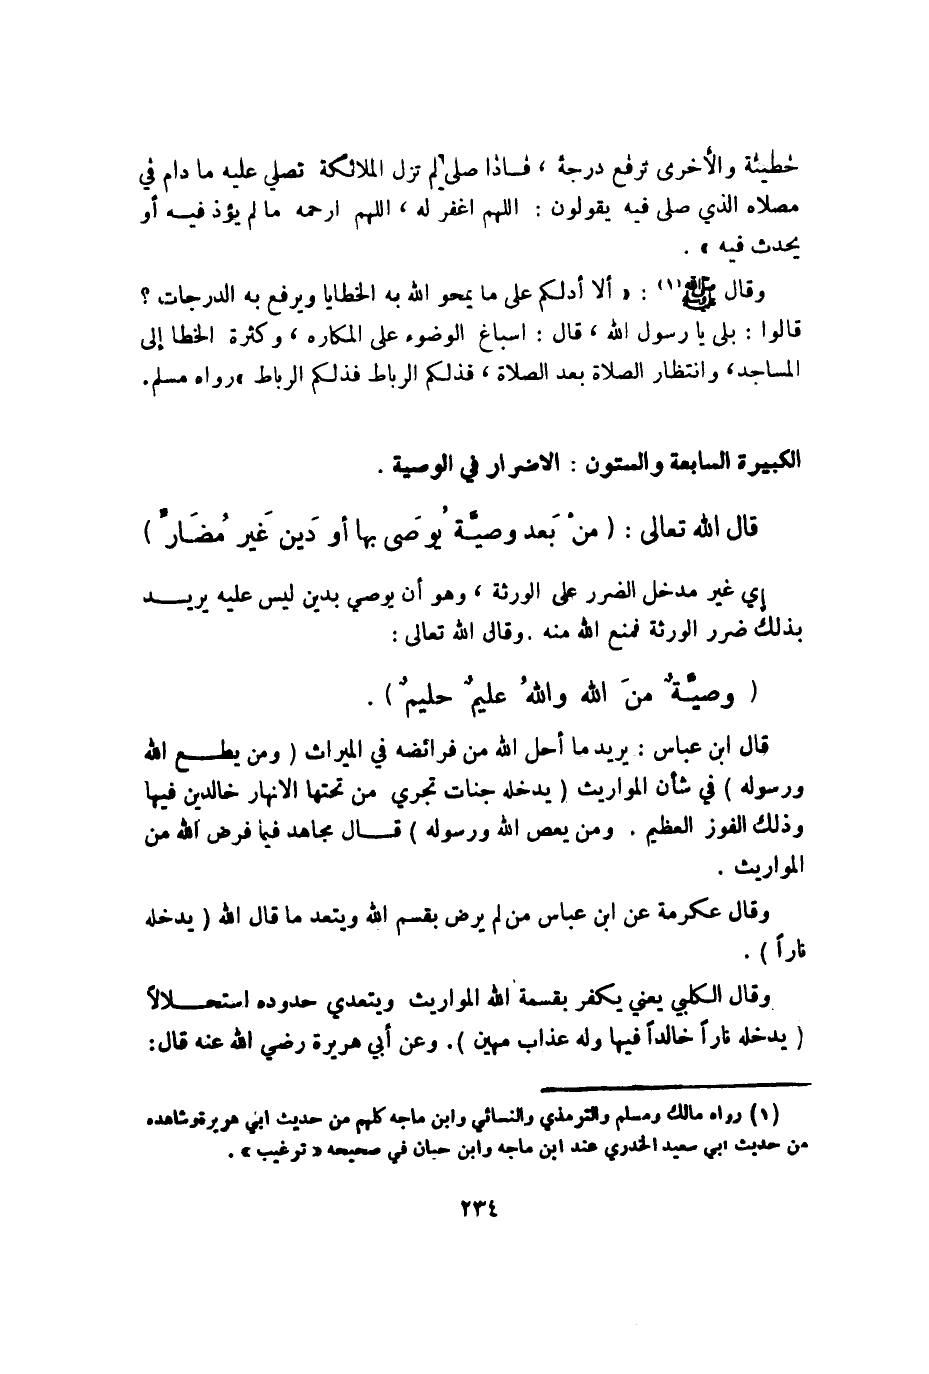 خطيئة والأخرى ترفع درجة ، فـاذا صلى لم تزل الملائكة تصلي عليه ما دام في
مصلاه الذي صلى فيه يقولون : اللهم اغفر له ، اللهم ارحمه ما لم يؤذ فيـه أو
يحدث فيه » .
وقال ﷺ (١) : « ألا أدلكم على ما يمحو الله به الخطايا ويرفع به الدرجات ؟
قالوا : بلى يا رسول الله ، قال : اسباغ الوضوء على المكاره ، وكثرة الخطا إلى
المساجد، وانتظار الصلاة بعد الصلاة ، فذلكم الرباط فذلكم الرباط » رواه مسلم.
الكبيرة السابعة والستون : الاضرار في الوصية .
قال الله تعالى : ( منْ بَعد وصيَّة يُوصَى بها أو دَين غَير مُضَارٍّ )
إي غير مدخل الضرر على الورثة ، وهو أن يوصي بدين ليس عليه يريـــد
بذلك ضرر الورثة فمنع الله منه . وقال الله تعالى :
( وصيَّةٌ منَ الله واللهُ عليمٌ حليمٌ ) .
قال ابن عباس : يريد ما أحل الله من فرائضه في الميراث ( ومن يطـــع الله
ورسوله ) في شأن المواريث ( يدخله جنات تجري من تحتها الانهار خالدين فيها
وذلك الفوز العظيم . ومن يعص الله ورسوله ) قـــال مجاهد فيما فرض الله من
المواريث .
وقال عكرمة عن ابن عباس من لم يرض بقسم الله ويتعد ما قال الله ( يدخله
ناراً ) .
وقال الكلبي يعني يكفر بقسمة الله المواريث ويتعدى حدوده استحـــلالاً
( يدخله ناراً خالداً فيها وله عذاب مهين ). وعن أبي هريرة رضي الله عنه قال:
(١) رواه مالك ومسلم والترمذي والنسائي وابن ماجه كلهم من حديث ابي هريرة وشاهده
من حديث ابي سعيد الخدري عند ابن ماجه وابن حبان في صحيحه « ترغيب » .
٢٣٤